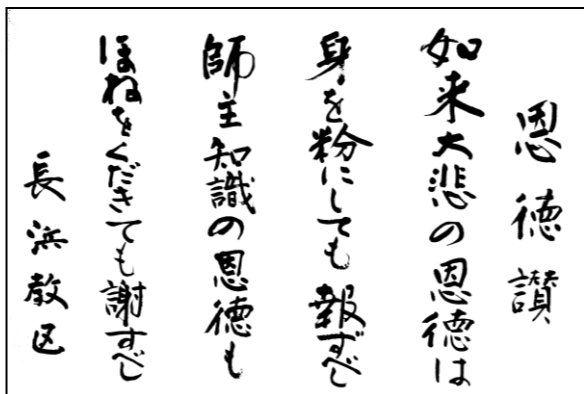 恩徳讃
如来大悲の恩徳は
身を粉にしても報ずべし
師主知識の恩徳も
ほねをくだきても謝すべし
長浜教区